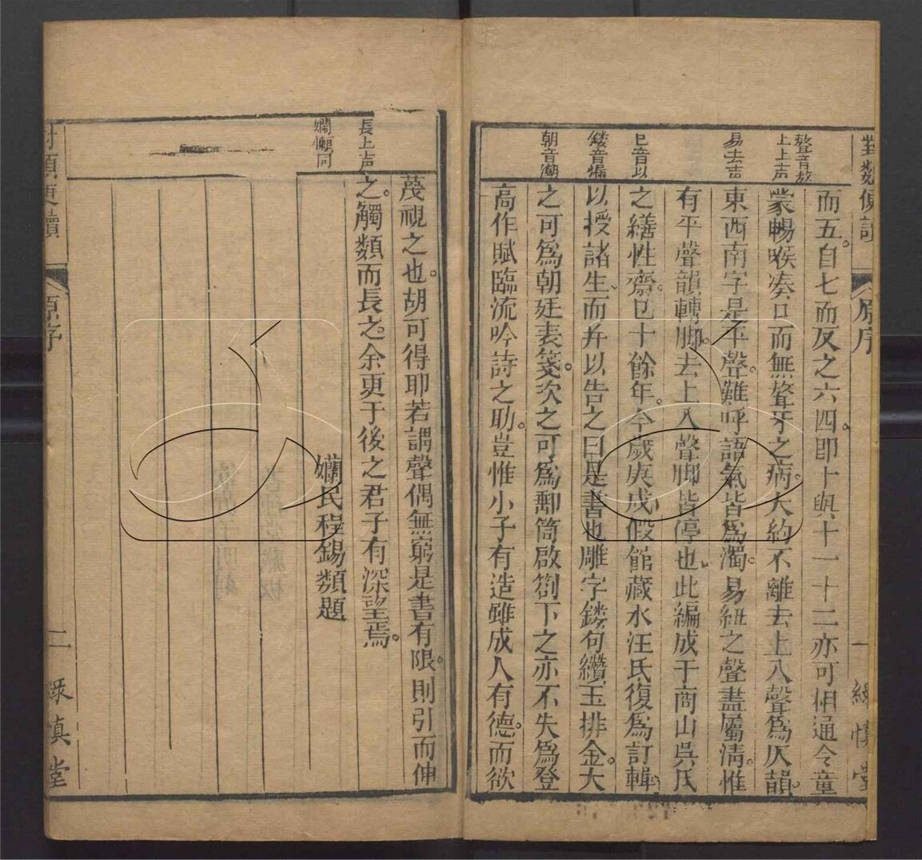 對類便讀
原序
一
聱音敖
上上声
易去声
已音以
鏤音漏
朝音潮
而五。自七而反之六四。即十與十一十二亦可相通。令童
蒙暢喉湊口而無聱牙之病。大約不離去上入聲為仄韻。
東西南字是平聲。難呼語氣皆為濁。易紐之聲盡屬清。惟
有平聲韻轉脚。去上入聲脚皆停也。此編成于商山吳氏
之繕性齋。已十餘年。今歲庚戌假館藏水汪氏復為訂輯。
以授諸生。而并以告之曰是書也雕字鏤句纘玉排金。大
之可為朝廷表箋。次之可為郵筒啟劄。下之亦不失為登
高作賦臨流吟詩之助。豈惟小子有造。雖成人有德。而欲
長上声
嫻同
蔑視之也。胡可得耶若謂聲偶無窮是書有限。則引而伸
之。觸類而長之。余更于後之君子有深望焉。
民程錫類題
原序
二
慎堂